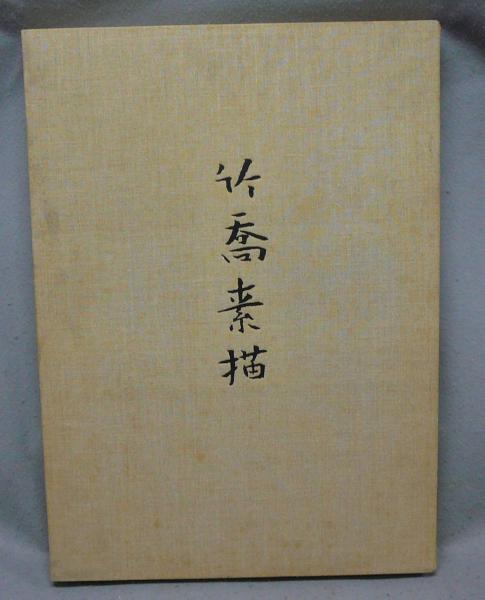 竹喬素描